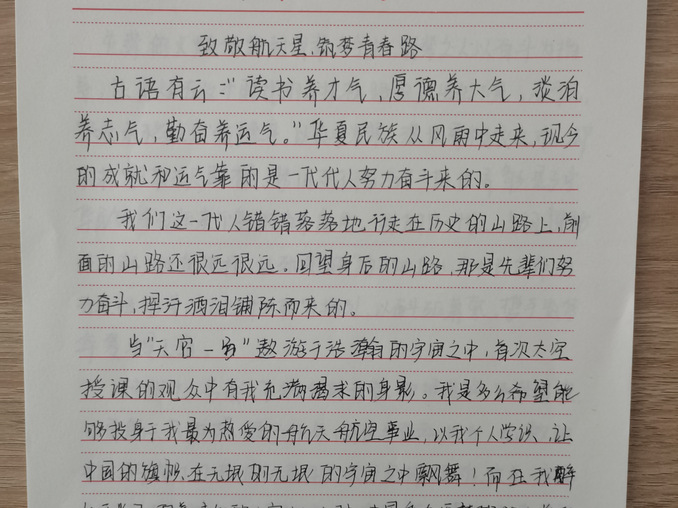 致敬航天星,筑梦青春路
古语有云:“读书养才气,厚德养大气,淡泊
养志气,勤奋养运气。”华夏民族从风雨中走来,现今
的成就和运气靠的是一代代人努力奋斗来的。
我们这一代人错错落落地行走在历史的山路上,前
面的山路还很远很远。回望身后的山路,那是先辈们努
力奋斗,挥汗洒泪铺陈而来的。
当“天宫一号”遨游于浩瀚的宇宙之中,首次太空
授课的观众中有我充满渴求的身影。我是多么希望能
够投身于我最为热爱的航天航空事业,以我个人学识,让
中国的旗帜在无垠的无垠的宇宙之中飘舞!而在我醉